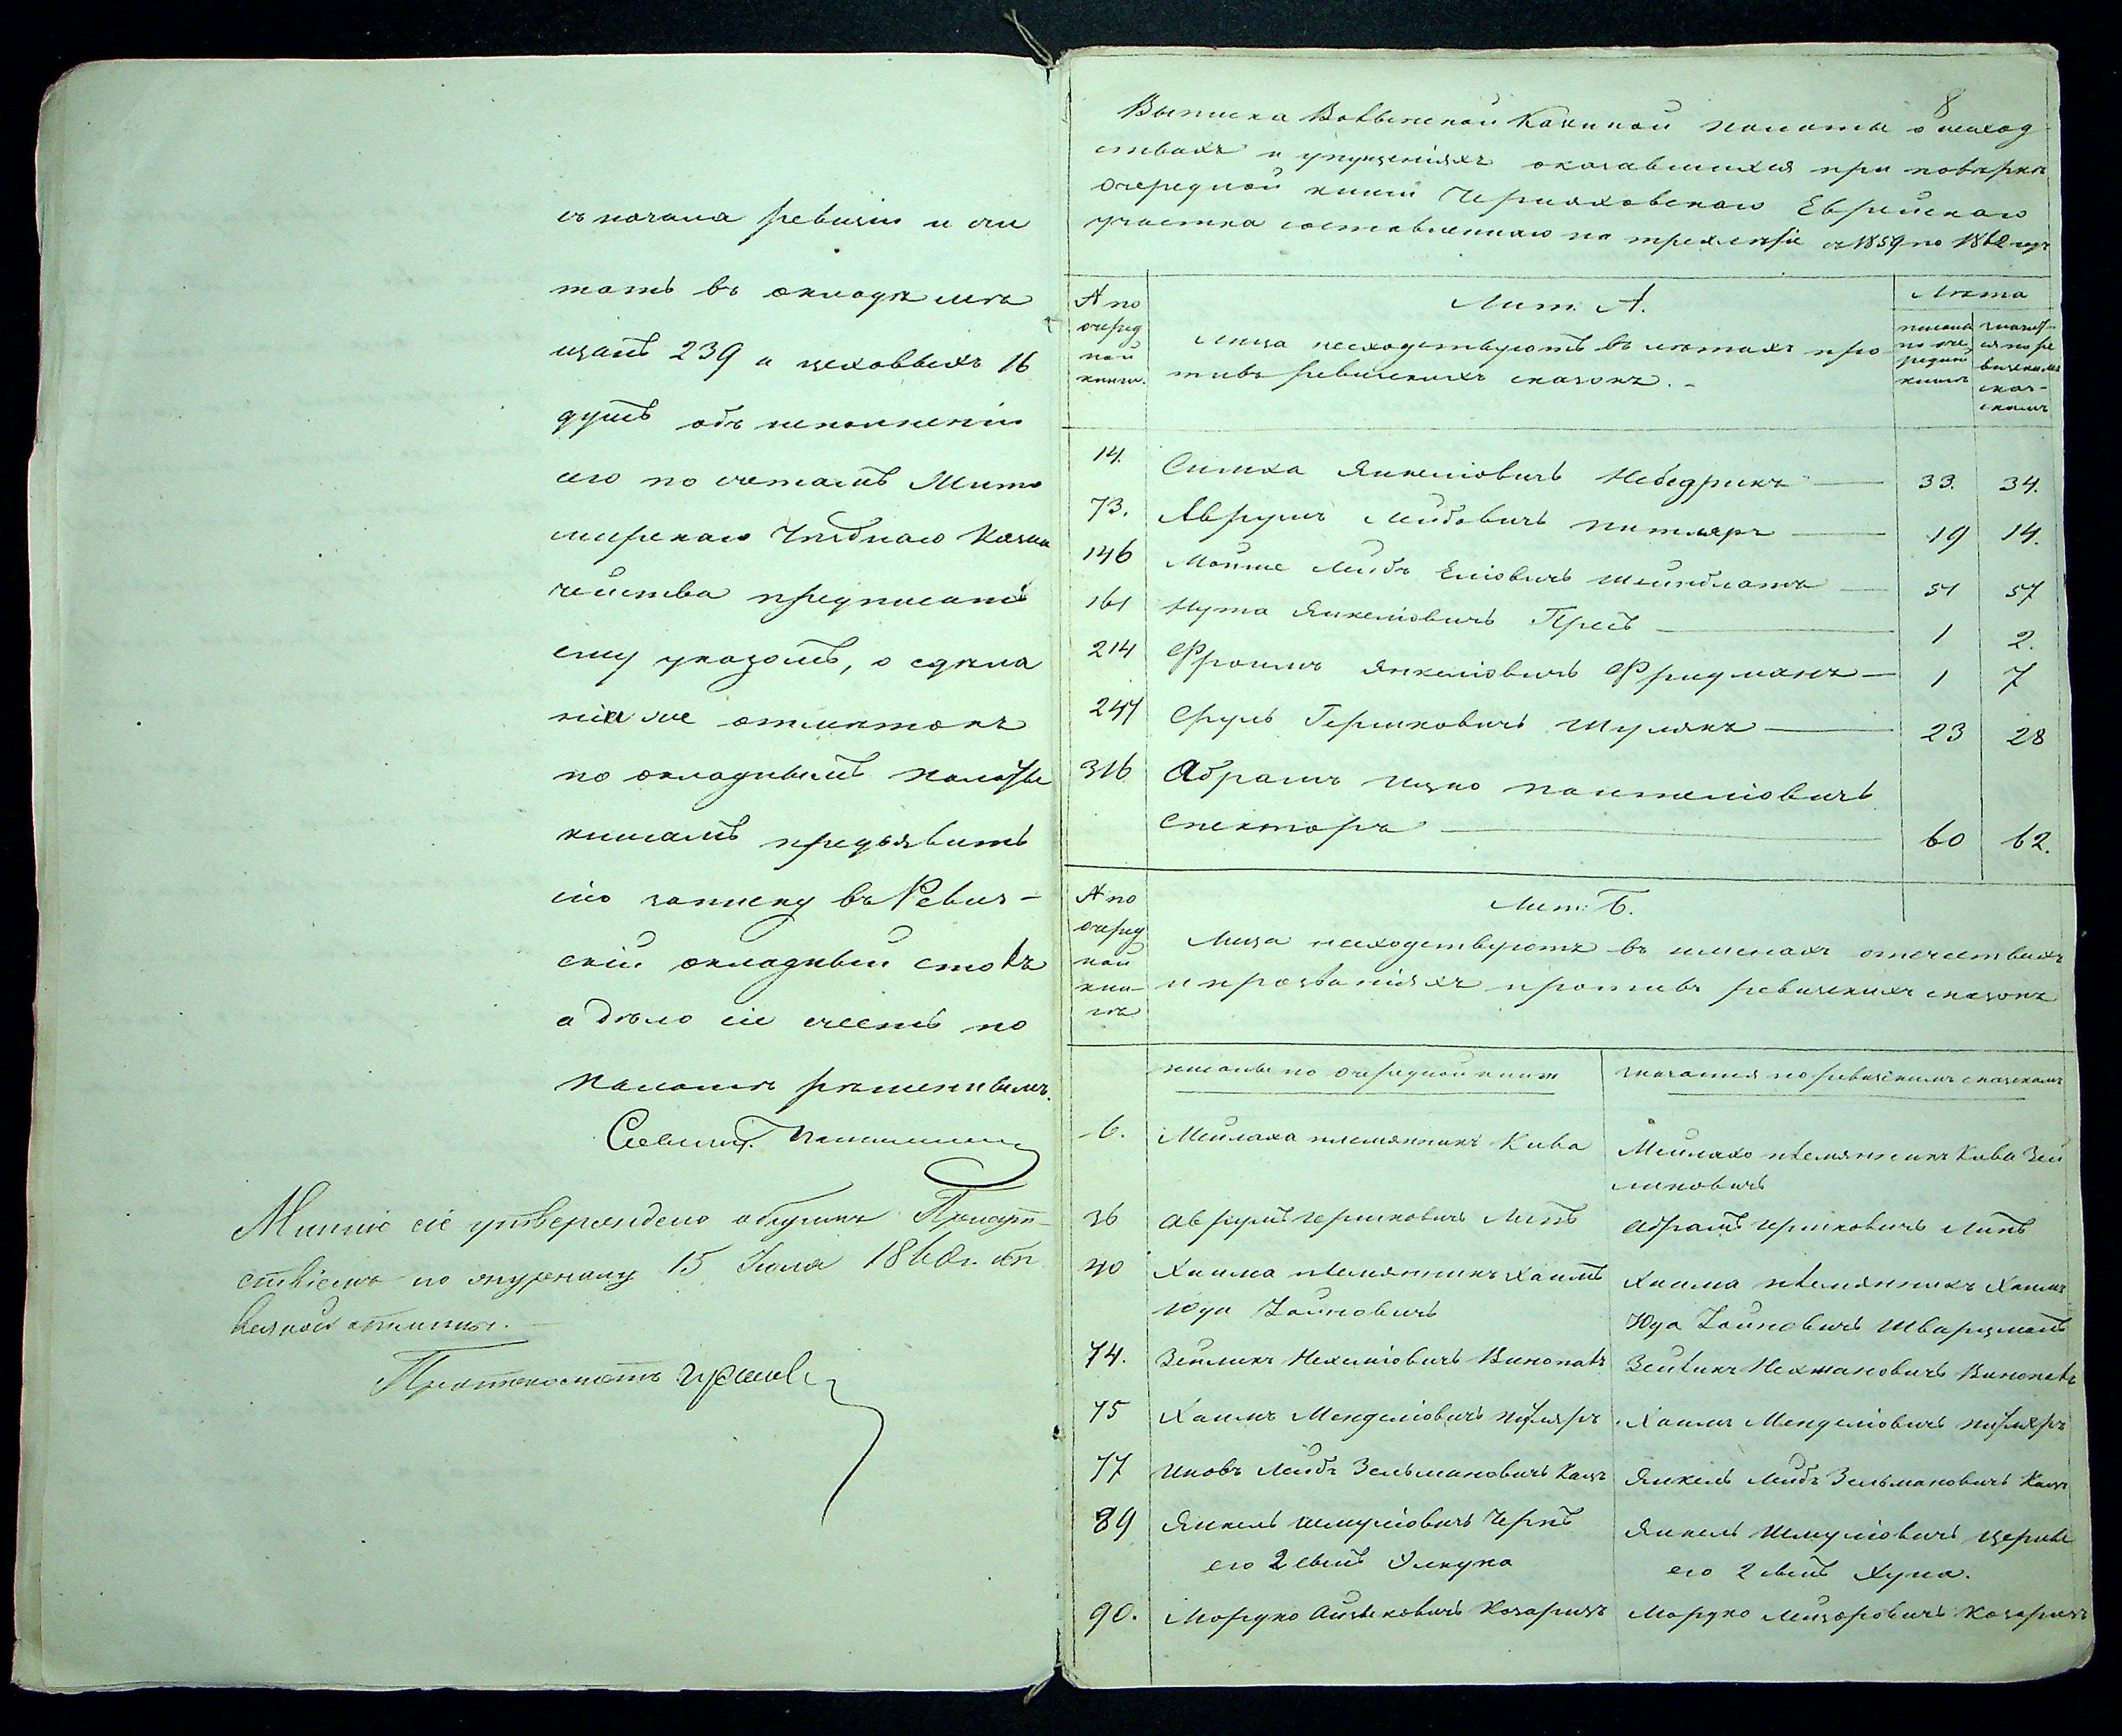 съ начала ревизіи и счи
тать въ окладѣ мѣ
щанъ 239 и цеховыхъ 16
душъ объ исполненіи
сего по счетамъ Жито
мирскаго Уѣзднаго Казна
чейства предписать
ему указомъ, о сдѣла
ніи же отмѣтокъ
по окладнымъ Палаты
книгамъ предъявить
сію записку въ Ревиз-
скій окладный столъ
а дѣло сіе счесть по
Палатѣ рѣшеннымъ.
Мнѣніе сіе утверждено общимъ Присут-
ствіемъ по журналу 15 Іюля 1860 г.
Протоколистъ
8
Выписка Волынской Казенной Палаты о несход
ствахъ и упущеніяхъ оказавшихся при повѣркѣ
очередной книги Черняховскаго Еврейскаго
участка составленнаго на трехлѣтіе съ 1859 по 1862 годъ
№ по очеред ной книгѣ.
Лит. А.
Лица несходствуютъ въ лѣтахъ про
тивъ ревизскихъ сказокъ.-
Лѣта
писаны по оче редной книгѣ
значат- ся по ре визскимъ сказ- камъ
14. Симха Янкеліовичъ Небедрикъ — 33. 34.
73. Аврумъ Лейбовичъ Питляръ — 19 14.
146 Мошке Лейбъ Еліовичъ Шейнблатъ — 51 57
161 Нута Янкеліовичъ Пресъ — 1 2.
214 Фроимъ Янкеліовичъ Фридманъ — 1 7
247 Сруль Гершковичъ Шулякъ — 23 28
316 Абрамъ Ицко
Спекторъ — 60 62.
№ по очеред ной кни- гѣ
Лит: Б.
Лица несходствуютъ въ именахъ отчествахъ
и прозваніяхъ противъ ревизскихъ сказокъ
писаны по очередной книгѣ
значатся по ревизскимъ сказкамъ
6. Мейлаха племянникъ Кива Мейлаха племянникъ Кива Зей
ликовичъ
36 Аврумъ Гершковичъ Липъ Абрамъ Гершковичъ Липъ
40 Хаима племянникъ Хаимъ Хаима племянникъ Хаимъ
Юда Хаимовичъ Юда Хаимовичъ Шварцманъ
74. Зейликъ Нехеміовичъ Зейликъ Нехмановичъ
75 Хаимъ Менделіовичъ Хаимъ Менделіовичъ
77 Іковъ Лейбъ Зельмановичъ Кацъ Янкель Лейбъ Зельмановичъ Кацъ
89 Янкель Шмуліовичъ Янкель Шмуліовичъ
его 2 сынъ его 2 сынъ Хуна.
90. Мордко Айзиковичъ Козарикъ Мордко Лейзоровичъ Козарикъ